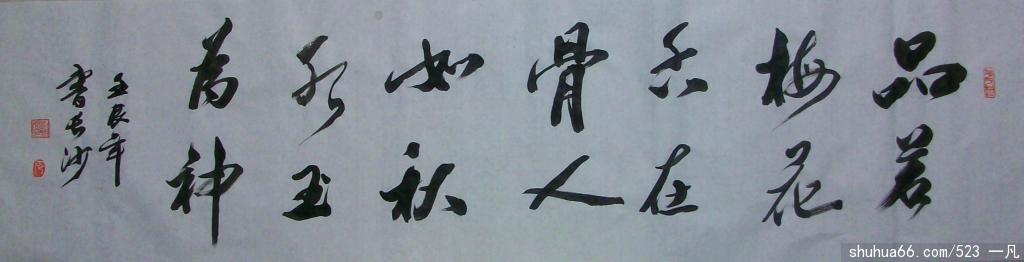 品若
梅花
香在
骨人
如秋
水玉
為神
壬辰年
書长沙
shuhua66.com/523 一凡